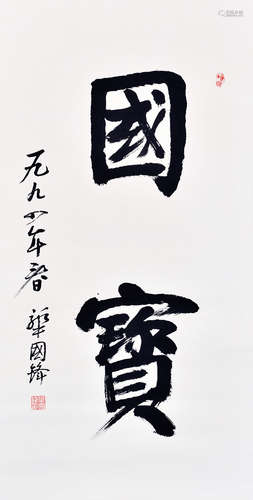 國寶
一九九四年春
華國鋒